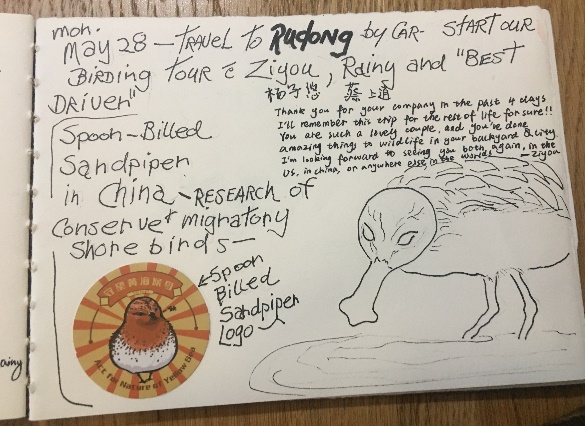 mon.
May 28 — TRAVEL to Rudong by CAR - START OUR
BIRDING TOUR c̄ Ziyou, Rainy and "BEST
DRIVER"
Thank you for your company in the past 4 days
I'll remember this trip for the rest of life for sure!!
You are such a lovely couple, and you've done
amazing things to wildlife in your backyard & city.
I'm looking forward to seeing you both again, in the
US, in china, or anywhere else in the world. — Ziyou
Spoon-Billed
Sandpiper
in China - RESEARCH of
Conserve + migratory
Shorebirds —
Spoon
Billed
Sandpiper
Logo
Act for Nature of Yellow Sea
ainy